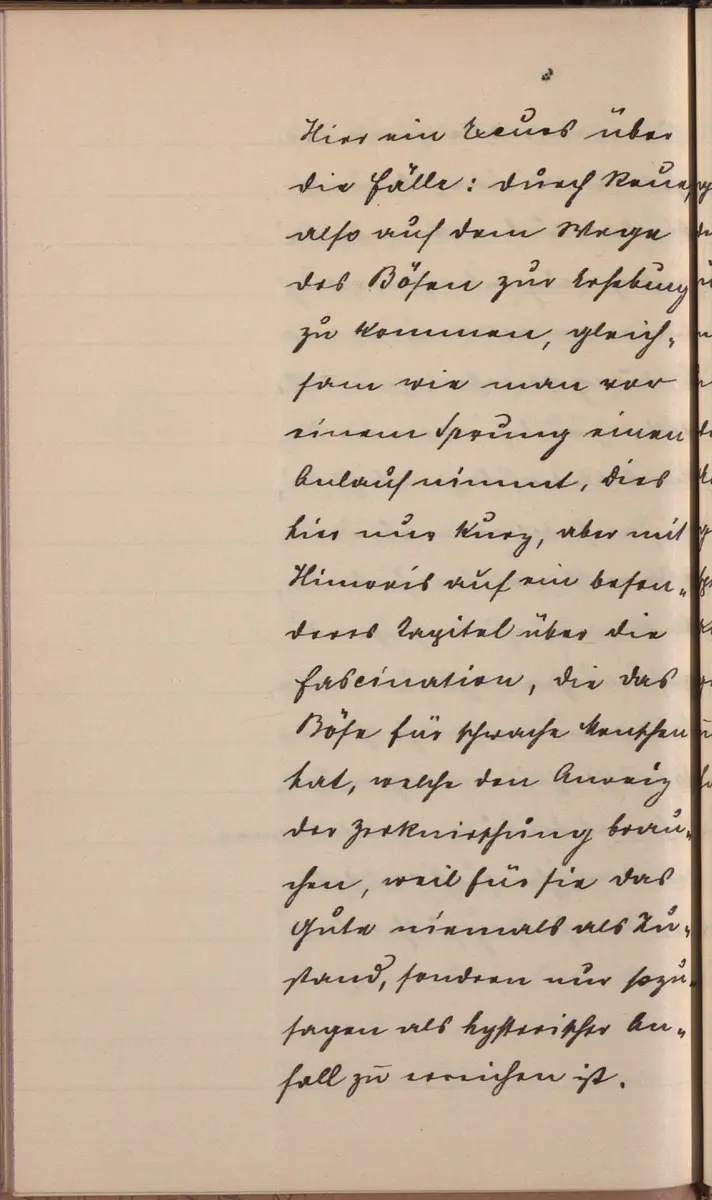 Hier ein Excurs über
die Fälle: durch Reue,
also auf dem Wege
des Bösen zur Erhebung
zu kommen, gleich-
sam wie man vor
einem Sprung einen
Anlauf nimmt, dies
hier nur kurz, aber mit
Hinweis auf ein beson-
deres Capitel über die
Fascination, die das
Böse für schwache Menschen
hat, welche den Anreiz
der Zerknirschung brau-
chen, weil für sie das
Gute niemals als Zu-
stand, sondern nur sozu-
sagen als hysterischer An-
fall zu erreichen ist.